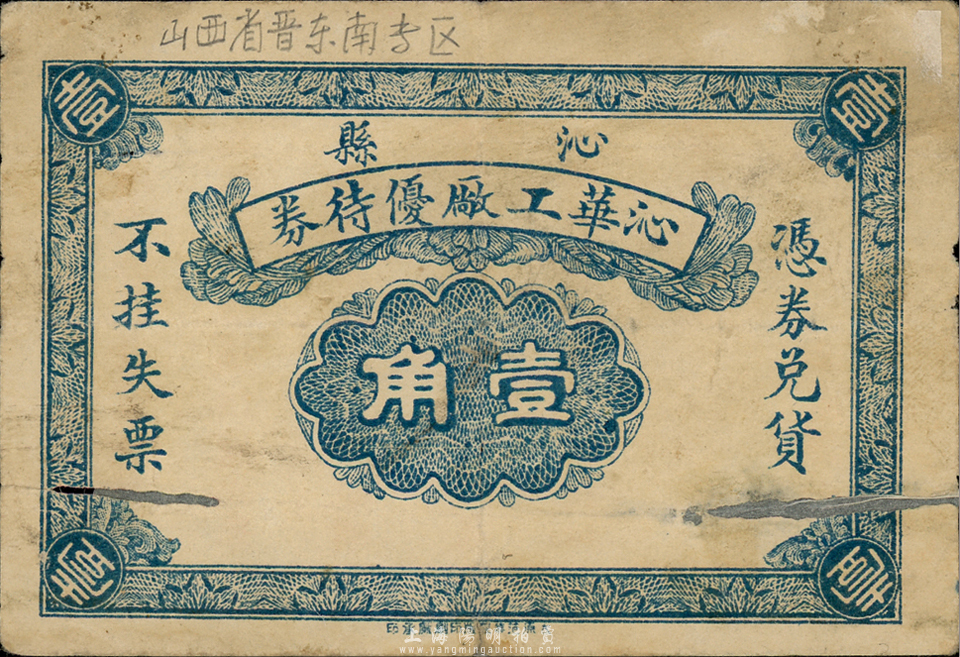 山西省晋东南专区
沁縣
沁華工廠優待券
憑券兑貨
壹角
不挂失票
壹
壹
壹
壹
上海陽明拍賣
www.yangmingauction.com